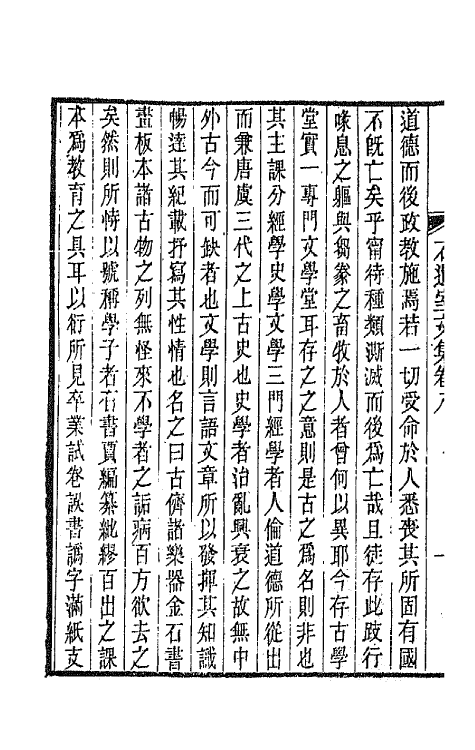 道德而後政敎施焉若一切受命於人悉喪其所固有國
不旣亡矣乎甯待種類澌滅而後爲亡哉且徒存此跂行
喙息之軀與芻豢之畜牧於人者曾何以異耶今存古學
堂實一專門文學堂耳存之之意則是古之爲名則非也
其主課分經學史學文學三門經學者人倫道德所從出
而兼唐虞三代之上古史也史學者治亂興衰之故無中
外古今而可缺者也文學則言語文章所以發揮其知識
暢達其紀載抒寫其性情也名之曰古儕諸樂器金石書
畫板本諸古物之列無怪來不學者之詬病百方欲去之
矣然則所恃以號稱學子者有書賈編纂紕繆百出之課
本爲敎育之具耳以衍所見卒業試卷誤書譌字滿紙支
石遺室文集卷八
一